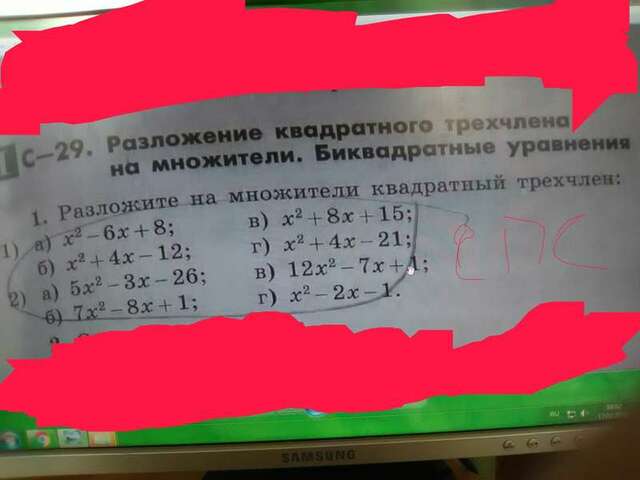 С–29. Разложение квадратного трехчлена
на множители. Биквадратные уравнения
1. Разложите на множители квадратный трехчлен:
1) а) x² – 6x + 8; в) x² + 8x + 15;
б) x² + 4x – 12; г) x² + 4x – 21;
2) а) 5x² – 3x – 26; в) 12x² – 7x + 1;
б) 7x² – 8x + 1; г) x² – 2x – 1.
RU
SAMSUNG